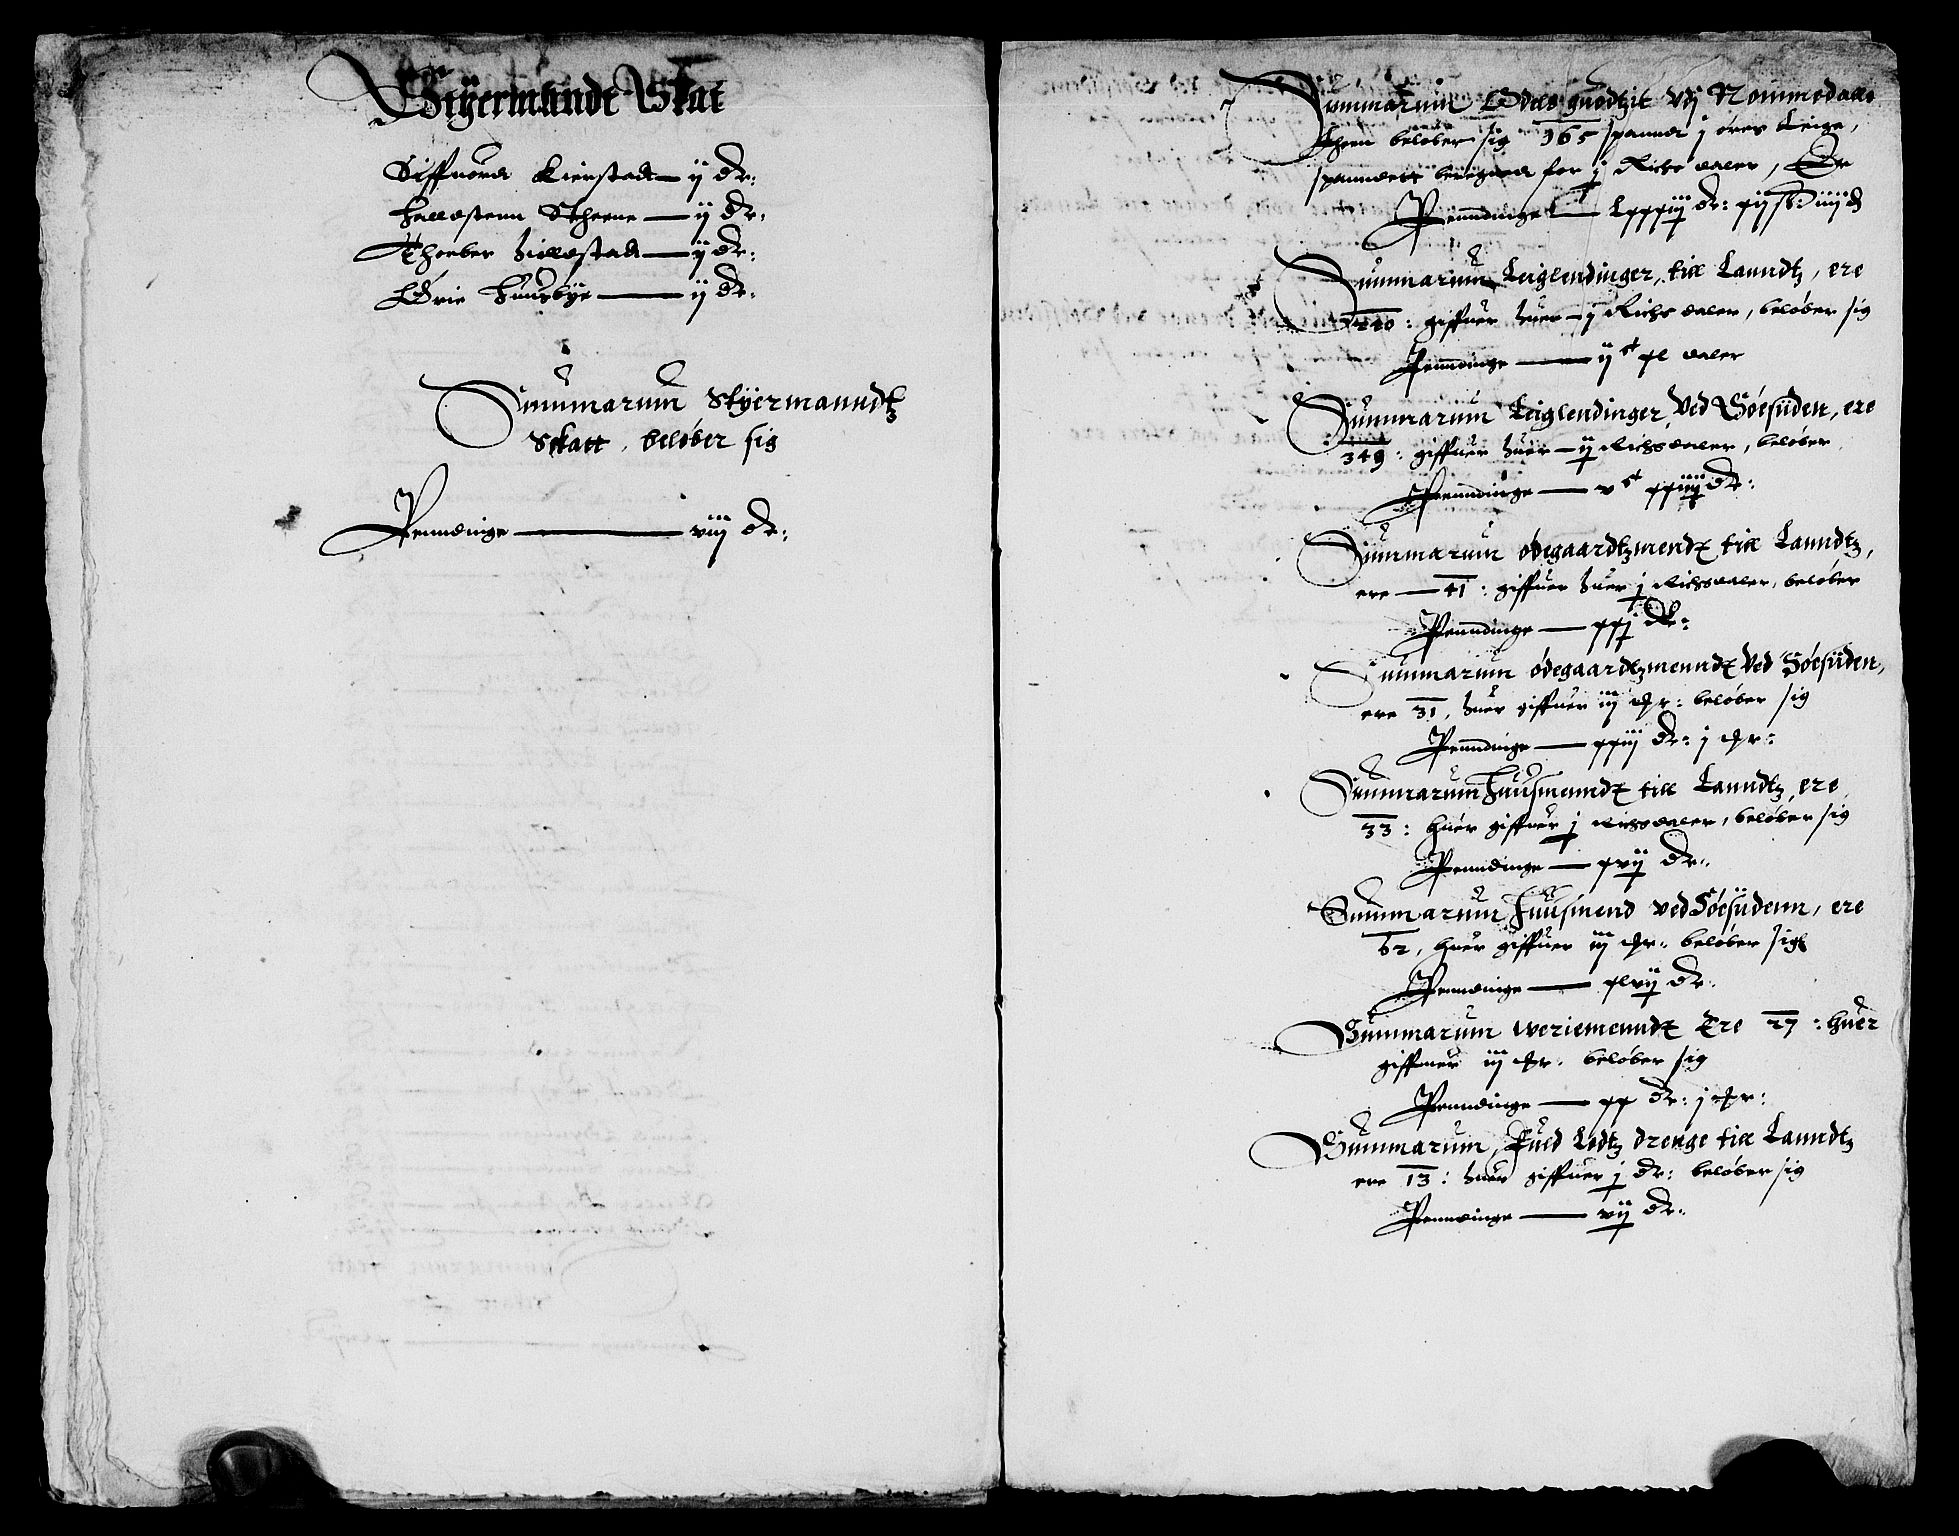 Styermande Skat
Siffuord Kierstad — ij dr:
Halldstenn Scheene — ij dr:
Thorber Hielldstad — ij dr:
Erie Huusbye — ij dr:
Summarum Styermanndtz
Skatt, beløber sig
Penndinge — viij dr:
Summarum Odels guodtzit vdj Nommedalls
lheen beløber sig 165 spannd j øres Leige,
spanndett beregned for j Richs daler, Er
Penndinge — Lxxxij dr: xij sk: iiij d
Summarum Leiglendinger, till Lanndtz, ere
240 : giffuer huer — j Richs daler, beløber sig
Penndinge — ij ct xl daler
Summarum Leiglendinger, Ved Søesiiden, ere
349 : giffuer huer — ij Richsdaler, beløber
Penndinge — v ct xxiiij dr:
Summarum ødegaardtzmend till Lanndtz,
ere — 41 : giffuer huer j Richsdaler, beløber
Penndinge — xxj dr:
Summarum ødegaardtzmennd Ved Søesiiden,
ere 31, huer giffuer iij ør: beløber sig
Penndinge — xxiij dr: j ør:
Summarum Huusmennd till Lanndtz, ere
33 : huer giffuer j Richsdaler, beløber sig
Penndinge — xvij dr:
Summarum Huusmend ved Søesiidenn, ere
62, huer giffuer iij ør: beløber sig
Penndinge — xlvij dr:
Summarum weriemennd Ere 27 : huer
giffuer iij ør: beløber sig
Penndinge — xx dr: j ør:
Summarum, Fuld Lødtz drenge till Lanndtz
ere 13 : huer giffuer j dr: beløber sig
Penndinge — vij dr: